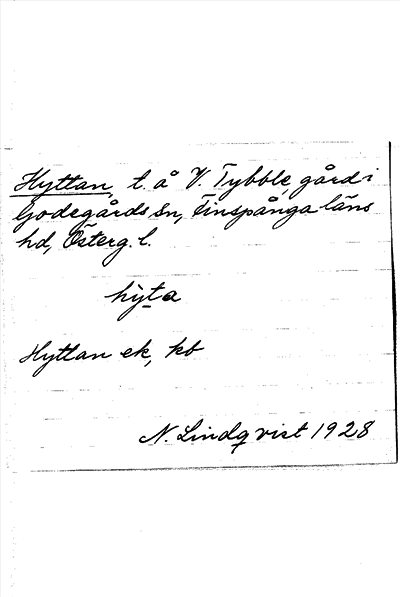 Hyttan, t. å V. Tybble, gård i
Godegårds sn, Finspånga läns
hd, Österg. l.
hyta
Hyttan ek, kb
N. Lindqvist 1928